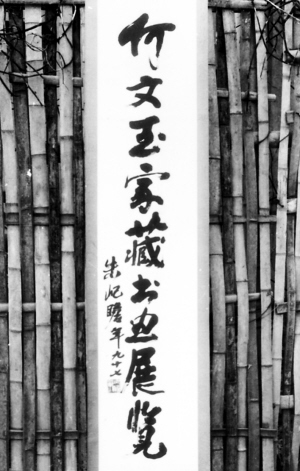 何文玉家藏书画展览
朱屺瞻年九十七